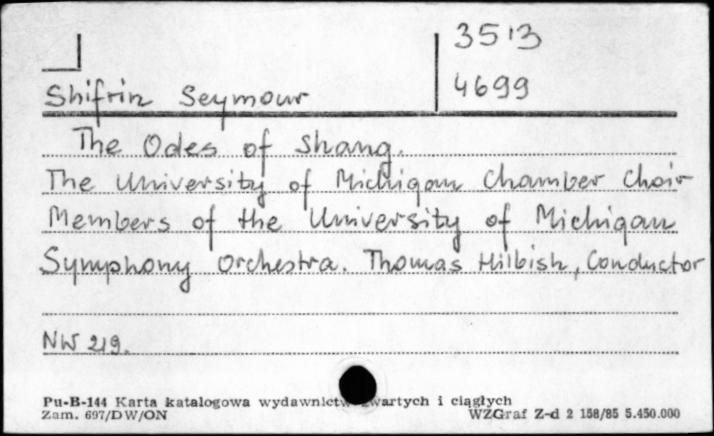 3513
4699
Shifrin Seymour
The Odes of Shang.
The University of Michigan Chamber Choir
Members of the University of Michigan
Symphony Orchestra. Thomas Hilbish, Conductor
NW 219.
Pu-B-144 Karta katalogowa wydawnictw zwartych i ciągłych
Zam. 697/DW/ON WZGraf Z-d 2 158/85 5.450.000